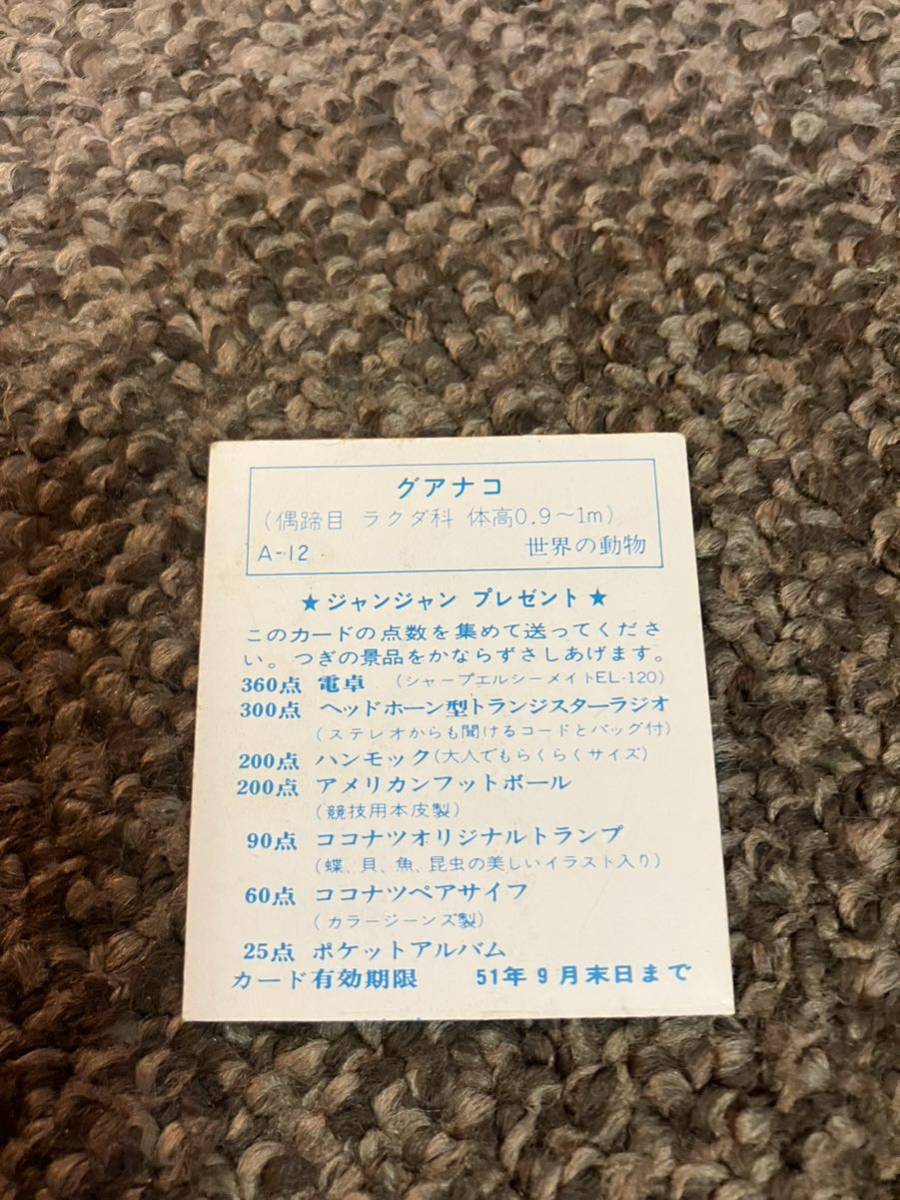 グアナコ
(偶蹄目 ラクダ科 体高0.9〜1m)
A-12 世界の動物
★ジャンジャン プレゼント★
このカードの点数を集めて送ってくださ
い。つぎの景品をかならずさしあげます。
360点 電卓 (シャープエルシーメイトEL-120)
300点 ヘッドホーン型トランジスターラジオ
(ステレオからも聞けるコードとバッグ付)
200点 ハンモック(大人でもらくらくサイズ)
200点 アメリカンフットボール
(競技用本皮製)
90点 ココナツオリジナルトランプ
(蝶、貝、魚、昆虫の美しいイラスト入り)
60点 ココナツペアサイフ
(カラージーンズ製)
25点 ポケットアルバム
カード有効期限 51年9月末日まで